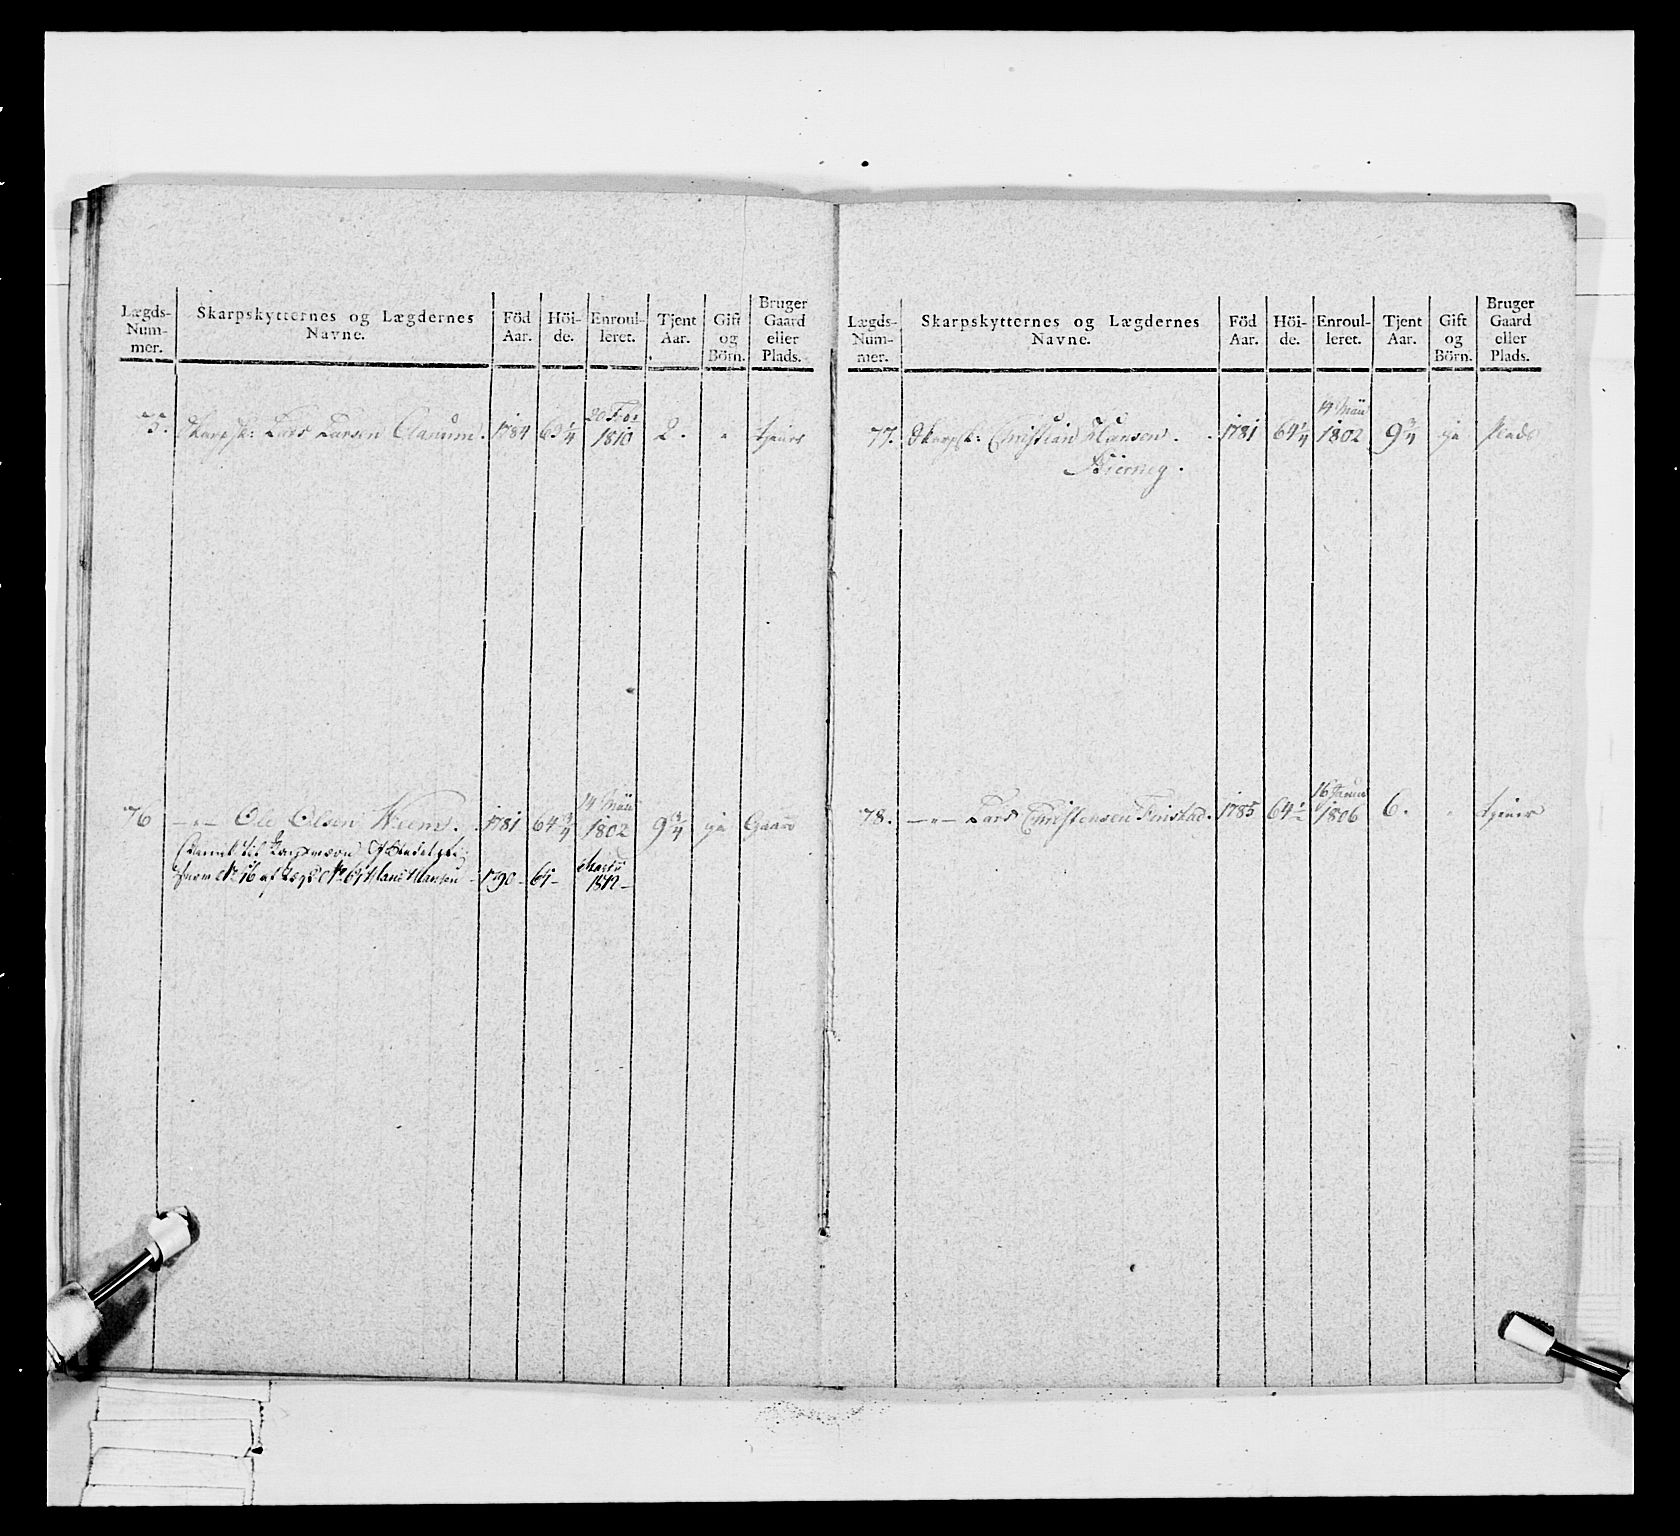 Lægds-
Num-
mer.
Skarpskytternes og Lægdernes
Navne.
Föd
Aar.
Höi-
de.
Enroul-
leret.
Tjent
Aar.
Gift
og
Börn.
Bruger
Gaard
eller
Plads.
75. Skarpsk: Lars Larsen 1784 63 1/4 20 Feb: 1810 2. " tjener
76 —"— Ole Olsen Wiem. 1781 64 3/4 14 Mai 1802 9 3/4 ja Gaard
No 16 af Lægd No 64 Hans Hansen 1790 - 64 - Martii 1812 -
Lægds-
Num-
mer.
Skarpskytternes og Lægdernes
Navne.
Föd
Aar.
Höi-
de.
Enroul-
leret.
Tjent
Aar.
Gift
og
Börn.
Bruger
Gaard
eller
Plads.
77. Skarpsk: Christian Hansen. 1781 64 1/4 14 Mai 1802 9 3/4 ja Plads
78. —"— Lars Christensen Finstad. 1785 64 16 Januar 1806 6. " tjener